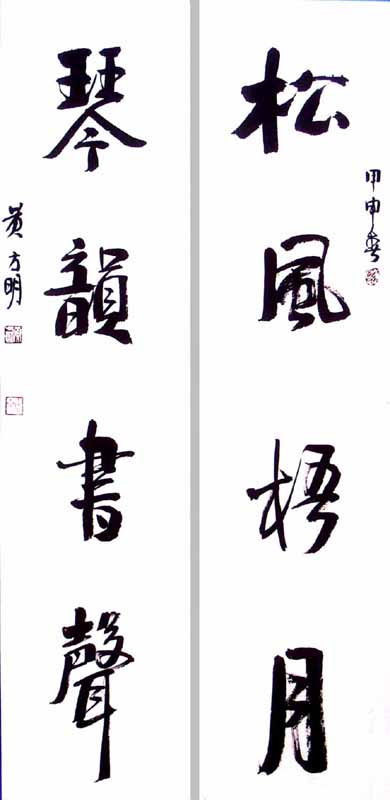 松風梧月
甲申春
琴韻書聲
黃方明